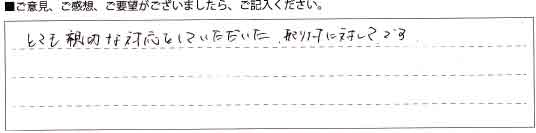 ■ご意見、ご感想、ご要望がございましたら、ご記入ください。
とても親切な対応をしていただいた、取り付に対してです